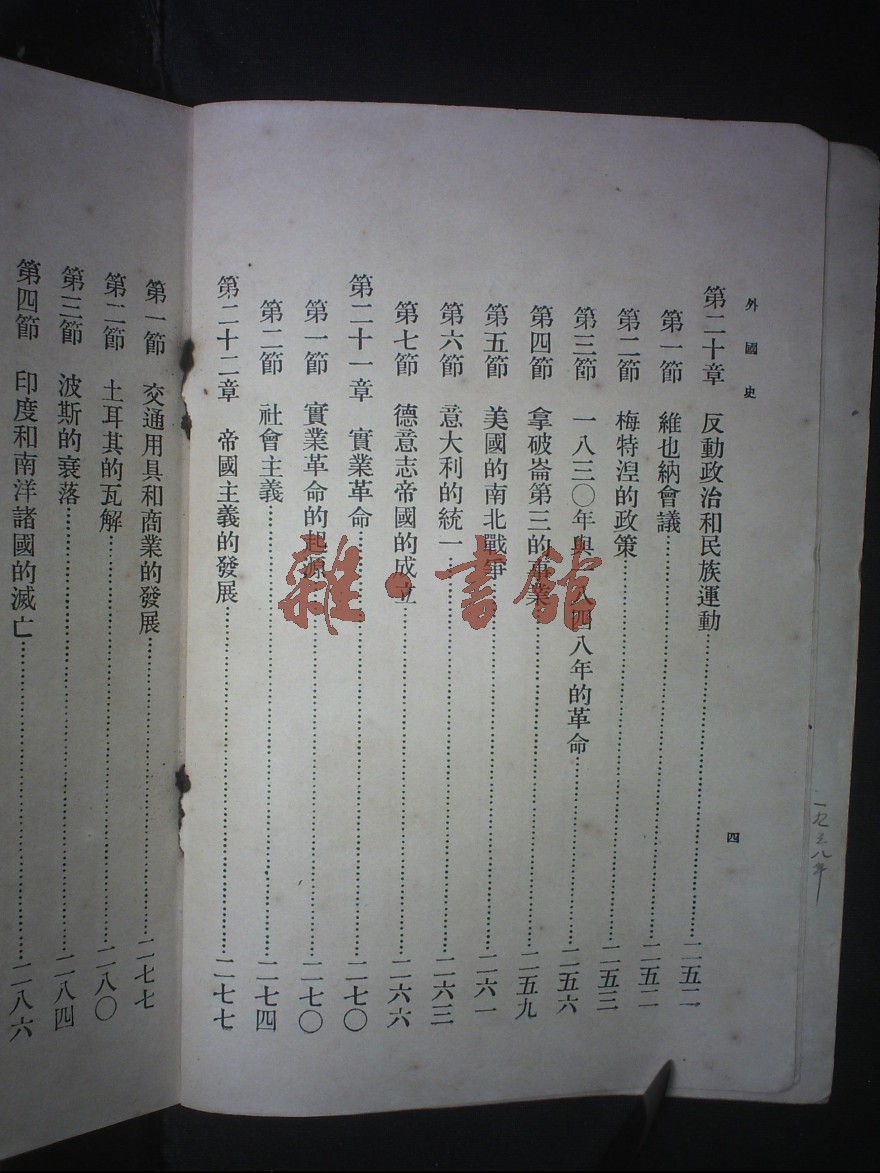 外國史
四
第二十章　反動政治和民族運動……二五二
第一節　維也納會議……二五二
第二節　梅特湼的政策……二五三
第三節　一八三〇年與一八四八年的革命……二五六
第四節　拿破崙第三的事業……二五九
第五節　美國的南北戰爭……二六一
第六節　意大利的統一……二六三
第七節　德意志帝國的成立……二六六
第二十一章　實業革命……二七〇
第一節　實業革命的起源……二七〇
第二節　社會主義……二七四
第二十二章　帝國主義的發展……二七七
第一節　交通用具和商業的發展……二七七
第二節　土耳其的瓦解……二八〇
第三節　波斯的衰落……二八四
第四節　印度和南洋諸國的滅亡……二八六
雜·書館
一九三八年